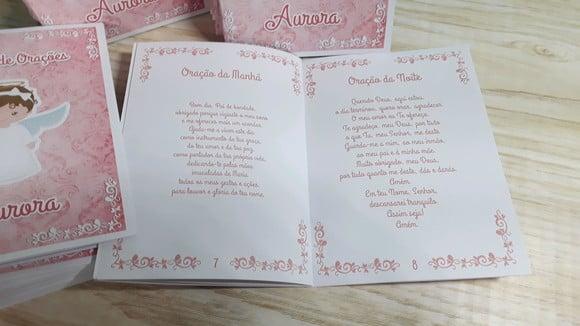 Aurora
Aurora
de Orações
urora
Oração da Manhã
Bom dia, Pai de bondade,
obrigado porque vigiaste o meu sono
e me ofereces mais um
Ajuda-me a viver este dia
como instrumento da tua graça,
do teu amor e da tua paz
como portador da tua própria vida,
dedicando-te pelas mãos
imaculadas de Maria
todos os meus gestos e ações,
para louvor e glória do teu nome.
7
Oração da Noite
Querido Deus, aqui estou,
o dia terminou, quero orar, agradecer.
O meu amor eu Te ofereço.
Te agradeço, meu Deus, por tudo
o que Tu, meu Senhor, me deste.
Guarda-me a mim, ao meu irmão,
ao meu pai e à minha mãe.
Muito obrigado, meu Deus,
por tudo quanto me deste, dás e darás.
Amém.
Em teu Nome, Senhor,
descansarei tranquilo.
Assim seja!
Amém.
8